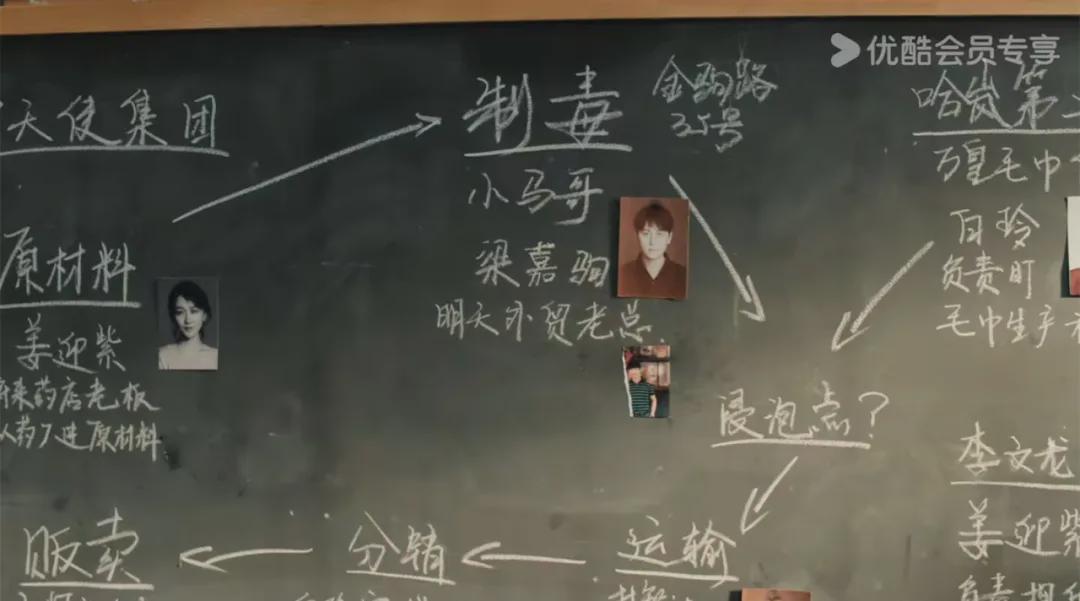 优酷会员专享
天使集团
制毒
金驹路
35号
哈岚第
万皇毛巾
小马哥
白玲
原材料
梁嘉驹
负责町
明天外贸老总
毛巾生产
姜迎紫
将来药店老板
从药厂进原材料
浸泡点?
李文龙
贩卖
分销
运输
姜迎紫
负责